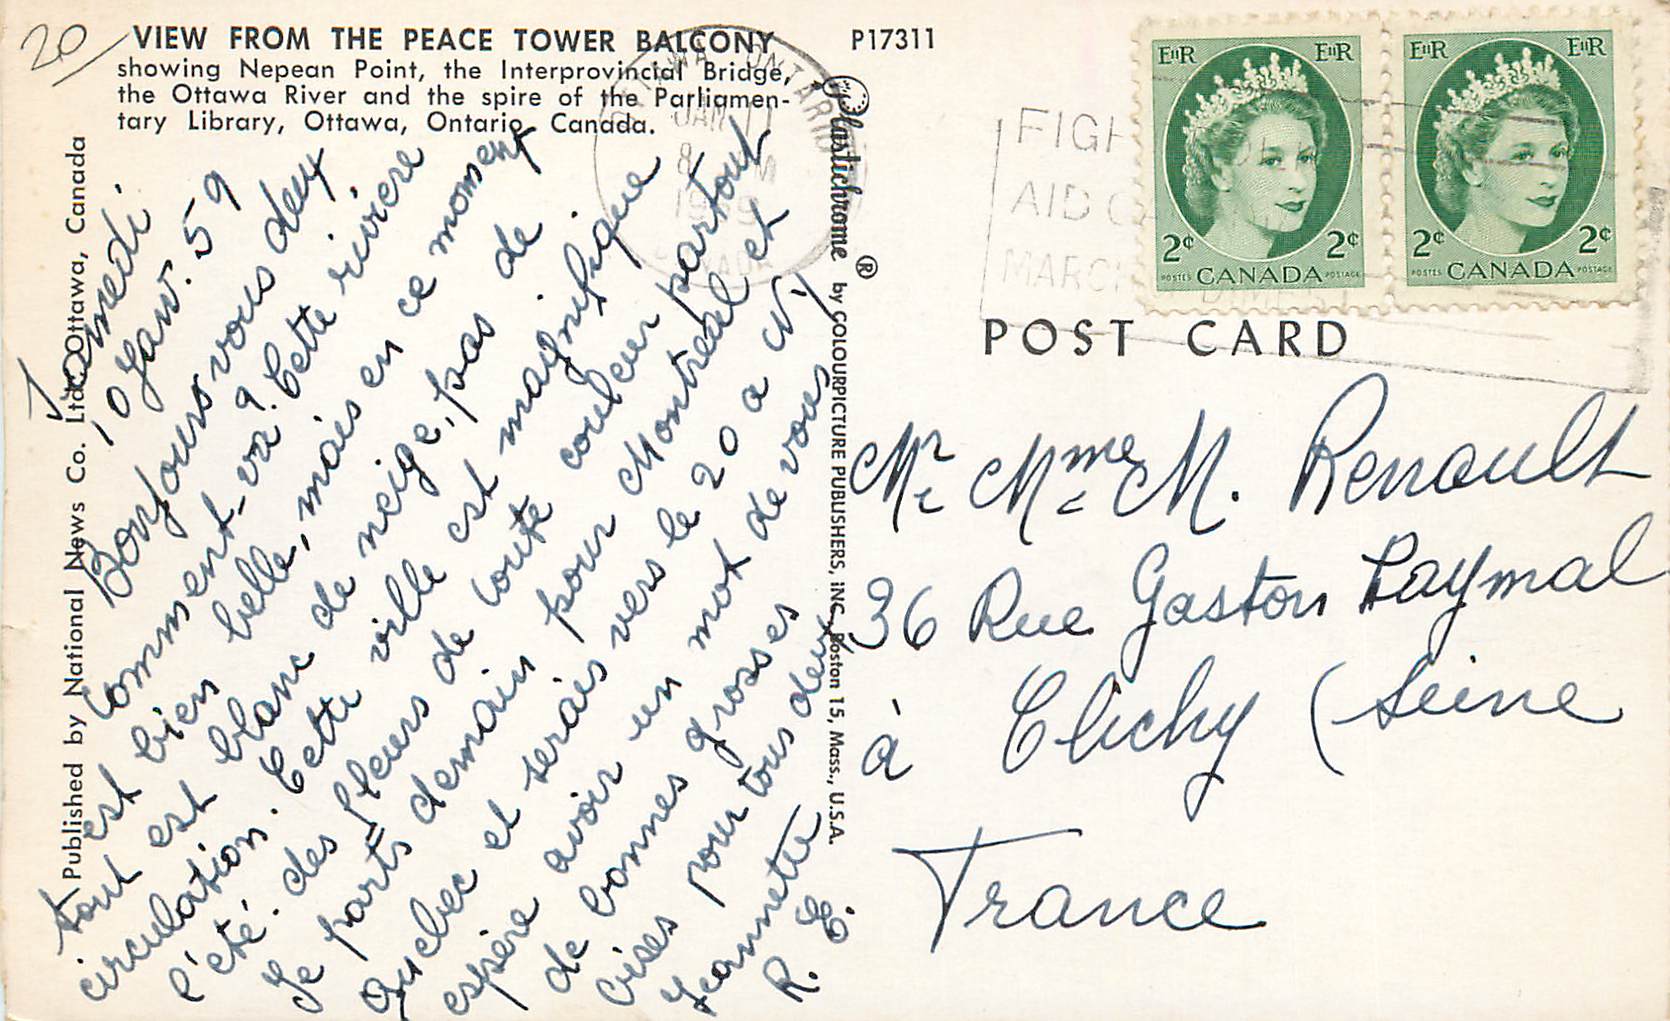 20
VIEW FROM THE PEACE TOWER BALCONY
showing Nepean Point, the Interprovincial Bridge,
the Ottawa River and the spire of the Parliamen-
tary Library, Ottawa, Ontario, Canada.
P17311
Published by National News Co. Ltd. Ottawa, Canada
Plastichrome ® by COLOURPICTURE PUBLISHERS, INC., Boston 15, Mass., U.S.A.
OTTAWA ONTARIO
JAN 11
8 M
1959
CANADA
FIGH
AID
MARCH DIMES
EIIR EIIR
2¢ 2¢
POSTES CANADA POSTAGE
EIIR EIIR
2¢ 2¢
POSTES CANADA POSTAGE
POST CARD
10 Janv. 59
Bonjours vous deux
comment-va? Cette rivière
est bien belle, mais en ce moment
tout est blanc de neige, pas de
circulation. Cette ville est magnifique
l'été. des fleurs de toute couleur partout
Je parts demain pour Montréal et
Quebec et serais vers le 20 a N.Y
espère avoir un mot de vous
de bonnes grosses
bises pour tous deux
Jeannette
R. E.
Mr Mme M. Renault
36 Rue Gaston Paymal
à Clichy (Seine
France